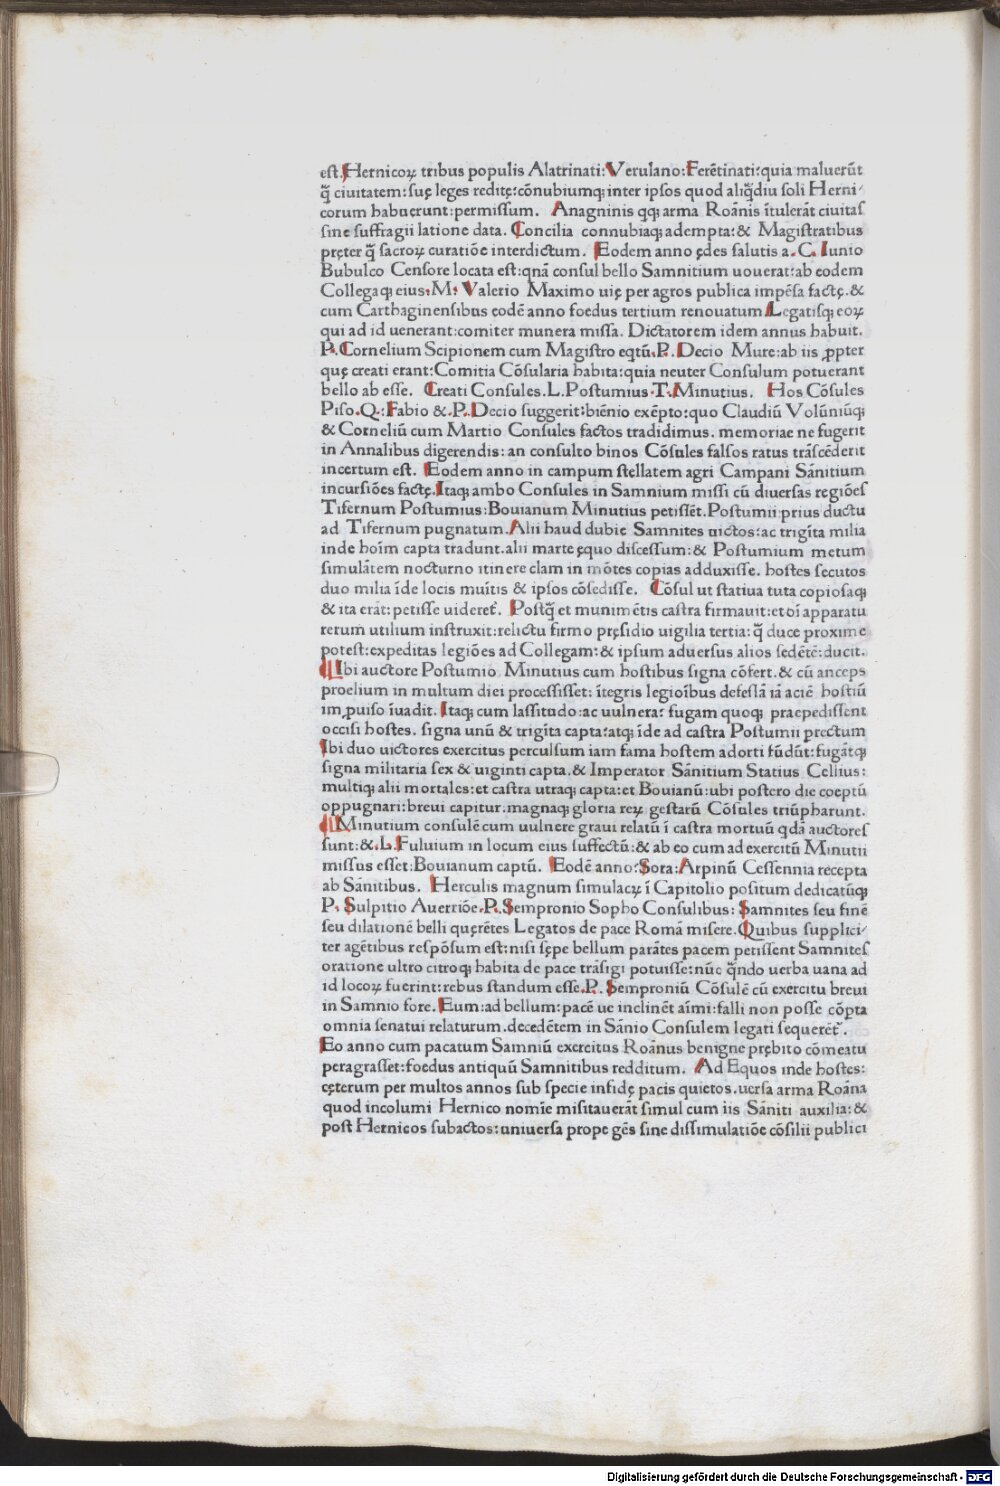 est. Hernicoꝝ tribus populis Alatrinati: Verulano: Ferētinati: quia maluerūt
q̄ ciuitatem: suę leges redite: cōnubiumqꝫ inter ipsos quod aliq̄diu soli Herni⸗
corum habuerunt: permissum. Anagninis qꝗ arma Roānis ītulerāt ciuitas
sine suffragii latione data. Concilia connubiaqꝫ adempta: & Magistratibus
pręter q̄ sacroꝝ curatiōe interdictum. Eodem anno ędes salutis a. C. Iunio
Bubulco Censore locata est: qnā consul bello Samnitium uouerat: ab eodem
Collegaqꝫ eius. M. Valerio Maximo uię per agros publica impēsa factę. &
cum Carthaginensibus eodē anno foedus tertium renouatum. Legatisqꝫ eoꝝ
qui ad id uenerant: comiter munera missa. Dictatorem idem annus habuit.
P. Cornelium Scipionem cum Magistro eqtū. P. Decio Mure: ab iis ꝓpter
quę creati erant: Comitia Cōsularia habita: quia neuter Consulum potuerant
bello ab esse. Creati Consules. L. Postumius. T. Minutius. Hos Cōsules
Piso. Q. Fabio &. P. Decio suggerit: biēnio exēpto: quo Claudiū Volūniūqꝫ
& Corneliū cum Martio Consules factos tradidimus. memoriae ne fugerit
in Annalibus digerendis: an consulto binos Cōsules falsos ratus trāscēderit
incertum est. Eodem anno in campum stellatem agri Campani Sānitium
incursiōes factę. Itaqꝫ ambo Consules in Samnium missi cū diuersas regiōes
Tifernum Postumius: Bouianum Minutius petissēt. Postumii prius ductu
ad Tifernum pugnatum. Alii haud dubie Samnites uictos: ac trigīta milia
inde hoīm capta tradunt. alii marte ęquo discessum: & Postumium metum
simulātem nocturno itinere clam in mōtes copias adduxisse. hostes secutos
duo milia īde locis muītis & ipsos cōsedisse. Cōsul ut statiua tuta copiosaqꝫ
& ita erāt: petisse uideret̄. Postq̄ et munimētis castra firmauit: et oī apparatu
rerum utilium instruxit: relictu firmo pręsidio uigilia tertia: q̄ duce proxime
potest: expeditas legiōes ad Collegam: & ipsum aduersus alios sedētē: ducit.
Ibi auctore Postumio Minutius cum hostibus signa cōfert. & cū anceps
proelium in multum diei processisset: ītegris legioībus defessā iā aciē hostiū
imꝓuiso īuadit. Itaqꝫ cum lassitudo: ac uulnera: fugam quoqꝫ praepedissent
occisi hostes. signa unū & trigīta capta: atqꝫ īde ad castra Postumii prectum
Ibi duo uictores exercitus perculsum iam fama hostem adorti fūdūt: fugātqꝫ
signa militaria sex & uiginti capta. & Imperator Sānitium Statius Cellius:
multiqꝫ alii mortales: et castra utraqꝫ capta: et Bouianū: ubi postero die coeptū
oppugnari: breui capitur. magnaqꝫ gloria reꝝ gestarū Cōsules triūpharunt.
Minutium consulē cum uulnere graui relatū ī castra mortuū qdā auctores
sunt: &. L. Fuluium in locum eius suffectū: & ab eo cum ad exercitū Minutii
missus esset: Bouianum captū. Eodē anno: Sora: Arpinū Cessennia recepta
ab Sānitibus. Herculis magnum simulacꝝ ī Capitolio positum dedicatūqꝫ
P. Sulpitio Auerriōe. P. Sempronio Sopho Consulibus: Samnites seu finē
seu dilationē belli quęrētes Legatos de pace Romā misere. Quibus supplici⸗
ter agētibus respōsum est: nisi sępe bellum parātes pacem petissent Samnites
oratione ultro citroqꝫ habita de pace trāsigi potuisse: nūc q̄ndo uerba uana ad
id locoꝝ fuerint: rebus standum esse. P. Semproniū Cōsulē cū exercitu breui
in Samnio fore. Eum: ad bellum: pacē ue inclinēt aīmi: falli non posse cōpta
omnia senatui relaturum. decedētem in Sānio Consulem legati sequerēt̄.
Eo anno cum pacatum Samniū exercitus Roānus benigne prębito cōmeatu
peragrasset: foedus antiquū Samnitibus redditum. Ad Equos inde hostes:
cęterum per multos annos sub specie infidę pacis quietos. uersa arma Roāna
quod incolumi Hernico nomīe misitauerāt simul cum iis Sāniti auxilia: &
post Hernicos subactos: uniuersa prope gēs sine dissimulatiōe cōsilii publici
Digitalisierung gefördert durch die Deutsche Forschungsgemeinschaft - DFG